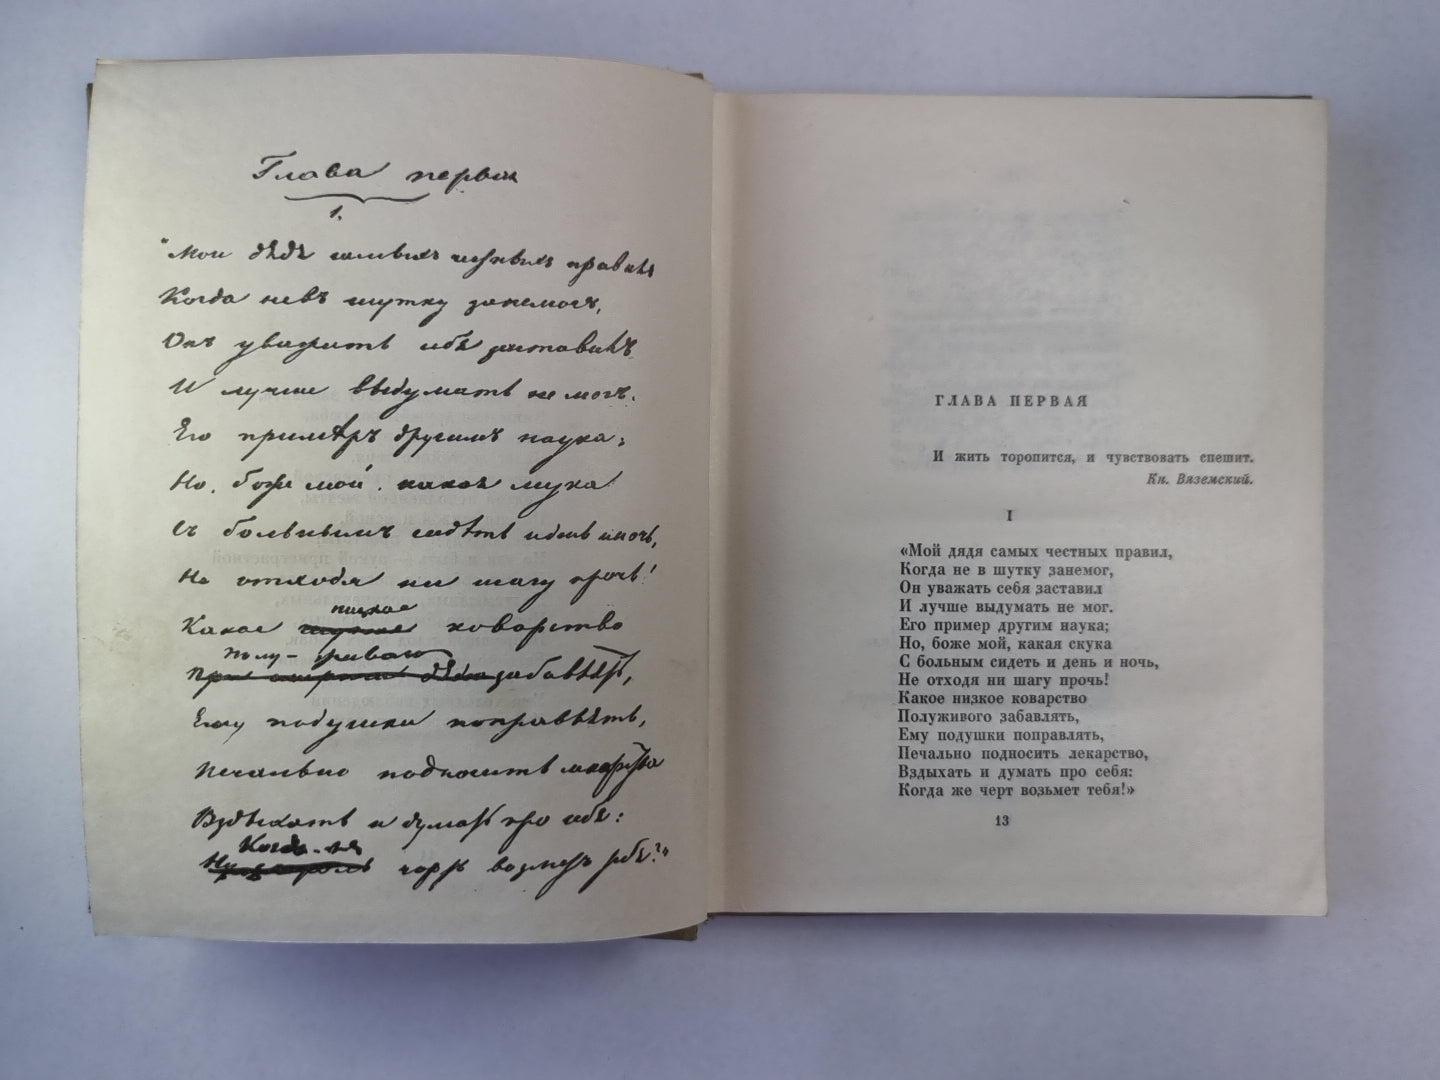 Глава первая
1.
"Мой дядя самыхъ честныхъ правилъ
Когда не въ шутку занемогъ,
Онъ уважать себя заставилъ
И лучше выдумать не могъ.
Его примѣръ другимъ наука;
Но, боже мой, какая мука
Съ больнымъ сидѣть и день и ночь,
Не отходя ни шагу прочь!
низкое
Какое коварство
Полу-живаго
забавлять,
Ему подушки поправлять,
Печально подносить лекарство
Вздыхать и думать про себя:
Когда-же
чортъ возметъ тебя?"
ГЛАВА ПЕРВАЯ
И жить торопится, и чувствовать спешит.
Кн. Вяземский.
I
«Мой дядя самых честных правил,
Когда не в шутку занемог,
Он уважать себя заставил
И лучше выдумать не мог.
Его пример другим наука;
Но, боже мой, какая скука
С больным сидеть и день и ночь,
Не отходя ни шагу прочь!
Какое низкое коварство
Полуживого забавлять,
Ему подушки поправлять,
Печально подносить лекарство,
Вздыхать и думать про себя:
Когда же черт возьмет тебя!»
13